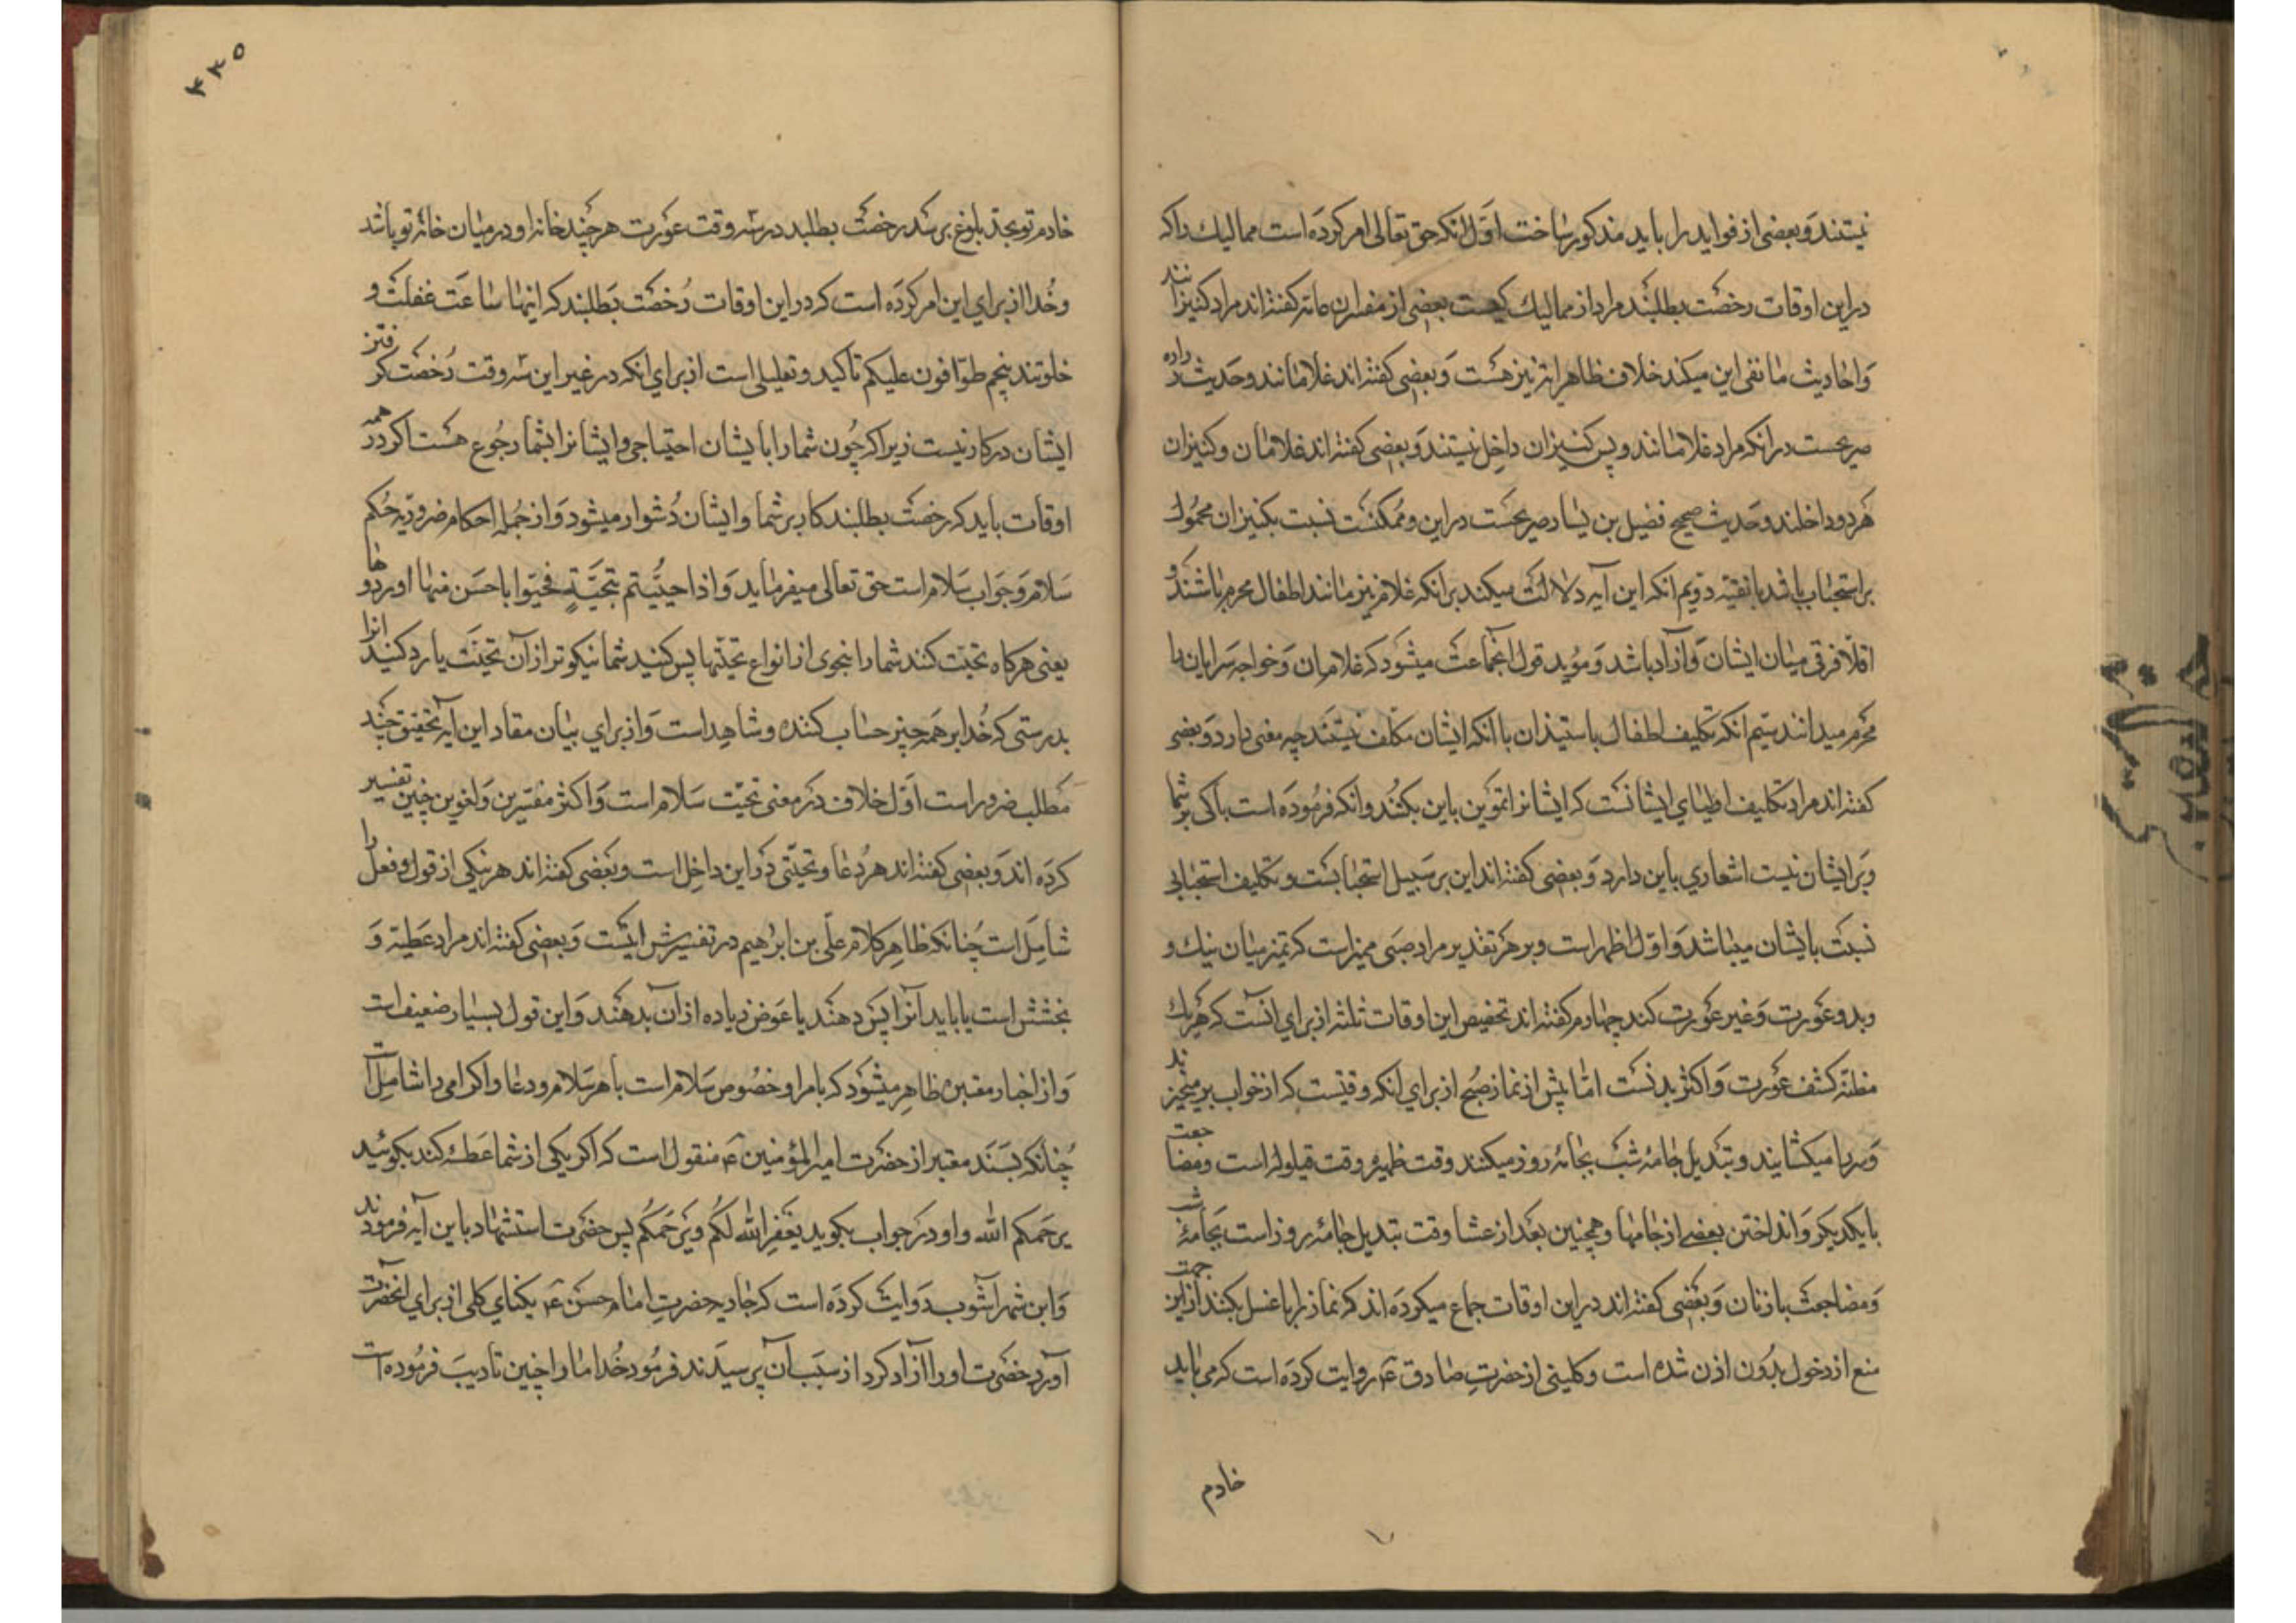 نیستند و بعضی از فواید را باید مذکور ساخت اوّل انکه حق تعالی امر کرده است ممالیك را که
در این اوقات رخصت بطلبند مراد از ممالیك کیست بعضی از مفسران عامه گفته‌اند مراد کنیزانند
و احادیث ما نفی این میکند خلاف ظاهر ایه نیز هست و بعضی گفته‌اند غلامانند و حدیث زراره
صریحست در انکه مراد غلامانند و پس کنیزان داخل نیستند و بعضی گفته‌اند غلامان و کنیزان
هر دو داخلند و حدیث صحیح فضیل بن یسار صریحست در این و ممکنست نسبت بکنیزان محمول
بر استحباب باشد یا تقیه دویم انکه این آیه دلالت میکند بر انکه غلام نیز مانند اطفال محرم باشند و
اقلّا فرقی میان ایشان و آزاد باشد و مؤید قول انجماعت میشود که غلامان و خواجه سرایان را
محرم میدانند سیّم انکه تکلیف اطفال باستیذان با انکه ایشان مکلف نیستند چه معنی دارد و بعضی
گفته‌اند مراد تکلیف اولیای ایشانست که ایشانرا تموین باین بکنند و انکه فرموده است باکی بر شما
و بر ایشان نیست اشعاری باین دارد و بعضی گفته‌اند این بر سبیل استحبابست و تکلیف استحبابی
نسبت بایشان میباشد و اوّل اظهر است و بر هر تقدیر مراد صبی ممیز است که تمیز میان نیك و
بد و عورت و غیر عورت کند چهارم گفته‌اند تخصیص این اوقات ثلثه از برای انست که هر یك
مظنه کشف عورت و اکثر بدنست امّا پیش از نماز صبح از برای آنکه وقتیست که از خواب بر میخیزند
و سرها میکشایند و تبدیل جامهٔ شب بجامهٔ روز میکنند وقت ظهیره وقت قیلوله است و مضاجعت
با یکدیگر و انداختن بعضی از جامها و همچنین بعد از عشا وقت تبدیل جامهٔ روز است بجامهٔ شب
و مضاجعت با زنان و بعضی گفته‌اند در این اوقات جماع میکرده‌اند که نماز را با غسل بکنند از این جهت
منع از دخول بدون اذن شده است و کلینی از حضرت صادق ع روایت کرده است که می باید
خادم
۳۳۵
خادم تو بحد بلوغ برسد رخصت بطلبد در سه وقت عورت هر چند خانهٔ او در میان خانهٔ تو باشد
و خدا از برای این امر کرده است که در این اوقات رخصت بطلبند که اینها ساعت غفلت و
خلوتند پنجم طوّافون علیکم تاکید و تعلیلی است از برای انکه در غیر این سه وقت رخصت گرفتن
ایشان در کار نیست زیرا که چون شما را با ایشان احتیاجی و ایشانرا بشما رجوع هست اگر در همه
اوقات باید که رخصت بطلبند کار بر شما و ایشان دشوار میشود و از جمله احکام ضروریه حکم
سلام و جواب سلام است حق تعالی میفرماید و اذا حیّیتم بتحیّةٍ فحیّوا باحسن منها او ردوها
یعنی هر گاه تحیّت کنند شما را بنحوی از انواع تحیّتها پس کنید شما نیکوتر از آن تحیّت یا رد کنید انرا
بدرستی که خدا بر همه چیز حساب کننده و شاهد است و از برای بیان مفاد این ایه تحقیق چند
مطلب ضرور است اوّل خلاف در معنی تحیّت سلام است و اکثر مفسّرین و لغویین چنین تفسیر
کرده‌اند و بعضی گفته‌اند هر دعا و تحیّتی در این داخل است و بعضی گفته‌اند هر نیکی از قول و فعل را
شامل است چنانکه ظاهر کلام علی بن ابراهیم در تفسیرش اینست و بعضی گفته‌اند مراد عطیه و
بخشش است یا باید آنرا پس دهند یا عوض زیاده از آن بدهند و این قول بسیار ضعیف است
و از اخبار معتبره ظاهر میشود که یا مراد خصوص سلام است یا هر سلام و دعا و اکرامی را شامل است
چنانکه بسند معتبر از حضرت امیر المؤمنین ع منقول است که اگر یکی از شما عطسه کند بگوئید
یرحمکم الله و او در جواب بگوید یغفر الله لکم و یرحمکم پس حضرت استشهاد باین آیه فرمودند
و ابن شهر آشوب روایت کرده است که جاریهٔ حضرت امام حسن ع یکتای گلی از برای انحضرت
آورد حضرت او را آزاد کرد از سبب آن پرسیدند فرمود خدا ما را چنین تادیب فرموده است